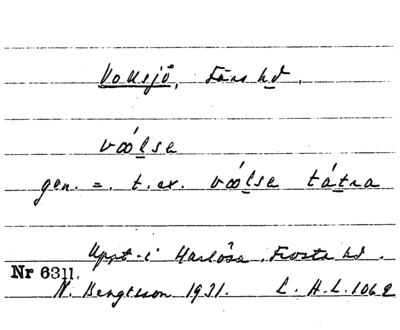 Vollsjö, Färs hd.
våolse
gen. =. t.ex. våolse tátra
Uppt. i Harlösa, Frosta hd.
Nr 6311.
N. Bengtsson 1931. L.A.L. 1062